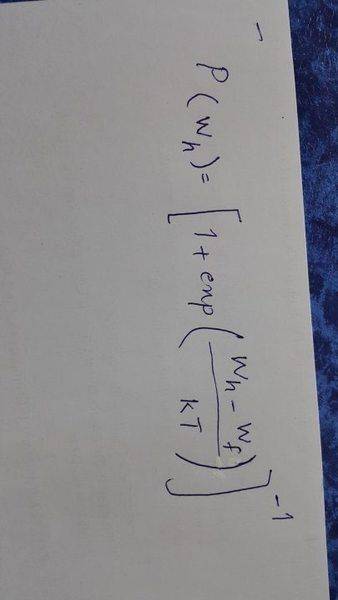 P(Wh) = [1 + exp((Wh - Wf)/kT)]^-1